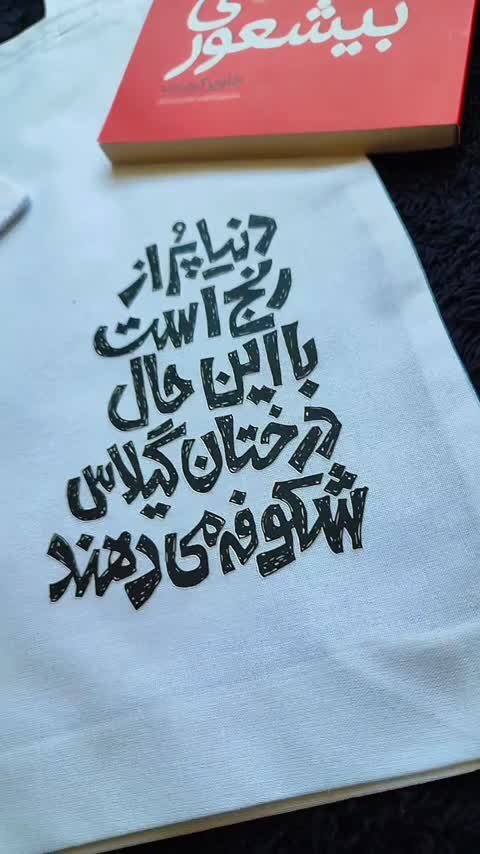 بیشعوری
دنیا پُر از
رنج است
با این حال
درختان گیلاس
شکوفه می دهند